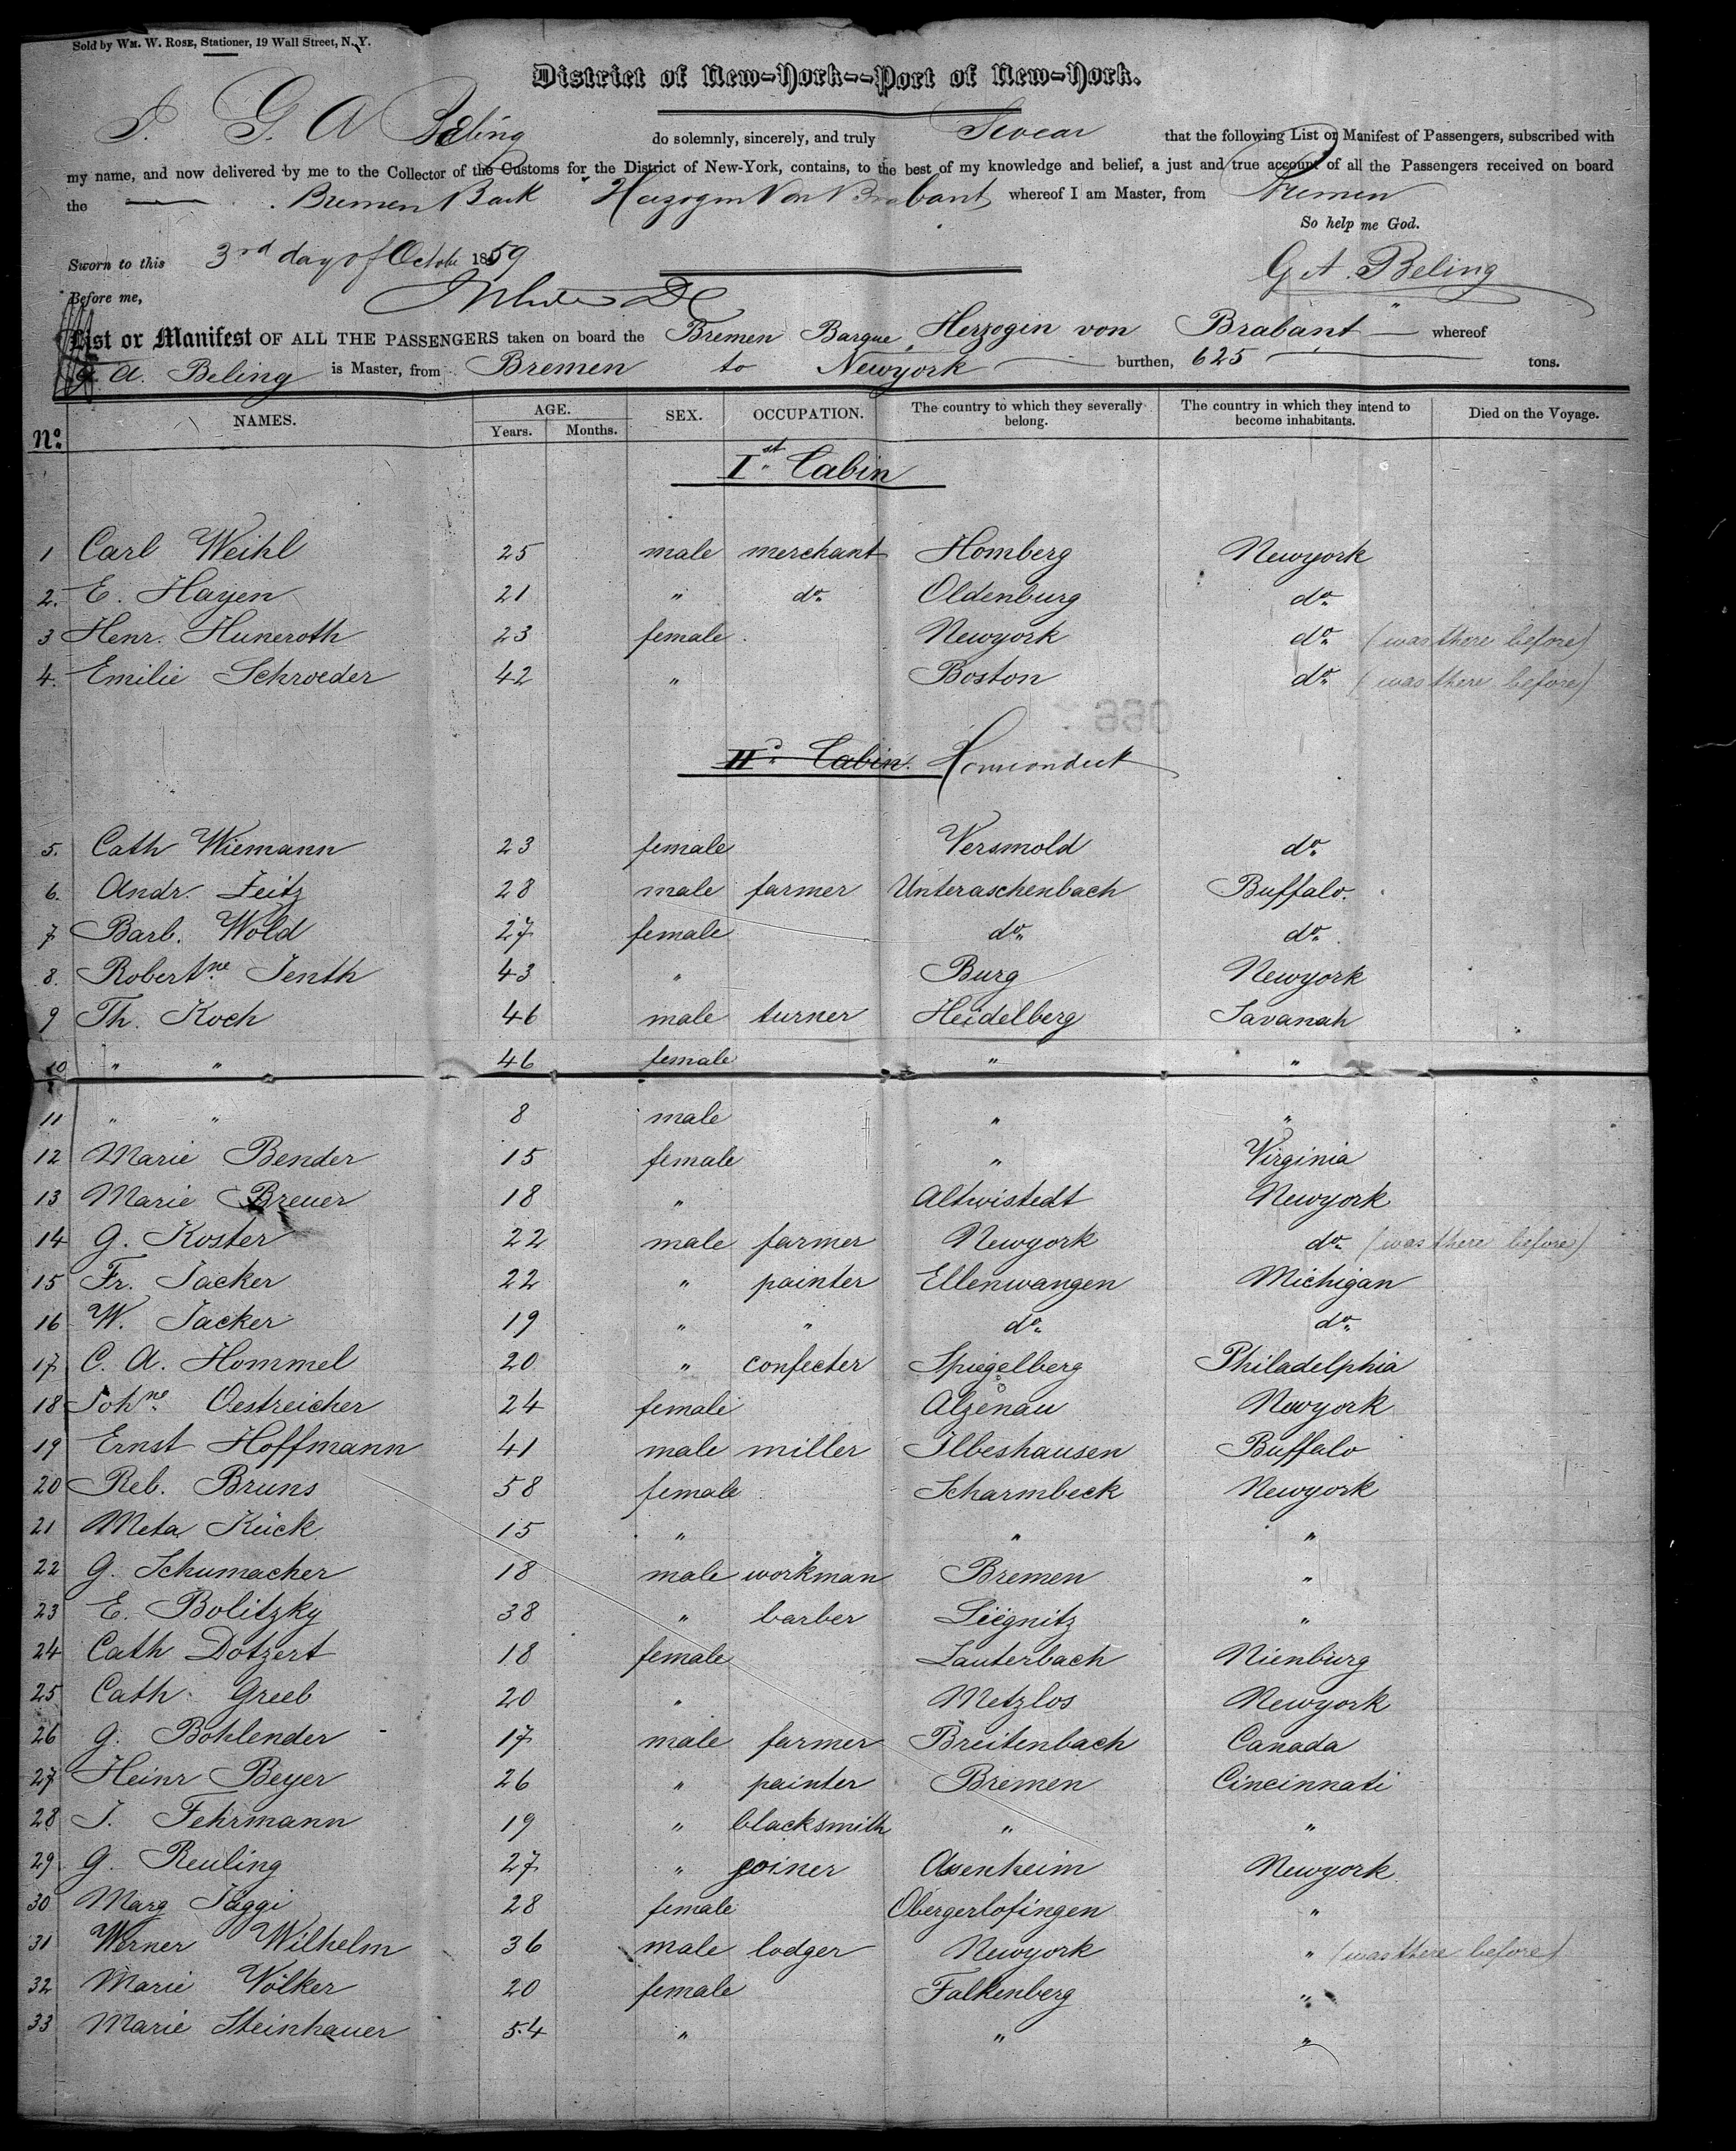 Sold by WM. W. ROSE, Stationer, 19 Wall Street, N. Y.
District of New-York--Port of New-York.
I. G. A Beling do solemnly, sincerely, and truly Swear that the following List or Manifest of Passengers, subscribed with
my name, and now delivered by me to the Collector of the Customs for the District of New-York, contains, to the best of my knowledge and belief, a just and true account of all the Passengers received on board
the Bremen Bark "Herzogin Von Brabant whereof I am Master, from Bremen
So help me God.
Sworn to this 3rd day of Octobe 1859
G. A. Beling
Before me,
List or Manifest OF ALL THE PASSENGERS taken on board the Bremen Barque "Herzogin von Brabant" whereof
G. A. Beling is Master, from Bremen to Newyork burthen, 625 tons.
No. NAMES. AGE. Years. Months. SEX. OCCUPATION. The country to which they severally belong. The country in which they intend to become inhabitants. Died on the Voyage.
Ist Cabin
1 Carl Weihl 25 male merchant Homberg Newyork
2. E. Hayen 21 " do. Oldenburg do.
3 Henr. Huneroth 23 female Newyork do. (was there before)
4. Emilie Schroeder 42 " Boston do. (was there before)
IId. Cabin.
5. Cath Wiemann 23 female Versmold do.
6. Andr. Zeitz 28 male farmer Unteraschenbach Buffalo.
7 Barb. Wold 27 female do. do.
8. Robertne Jenth 43 " Burg Newyork
9 Th. Koch 46 male turner Heidelberg Savanah
10 " " 46 female " "
11 " " 8 male " "
12 Marie Bender 15 female " Virginia
13 Marie Breuer 18 " Altwistedt Newyork
14 G. Koster 22 male farmer Newyork do. (was there before)
15 Fr. Jacker 22 " painter Ellenwangen Michigan
16 W. Jacker 19 " " do. do.
17 C. A. Hommel 20 " confecter Spiegelberg Philadelphia
18 Johne. Oestreicher 24 female Alzenau Newyork
19 Ernst Hoffmann 41 male miller Ilbeshausen Buffalo
20 Reb. Bruns 58 female Scharmbeck Newyork
21 Meta Kück 15 " " "
22 G. Schumacher 18 male workman Bremen "
23 E. Bolitzky 38 " barber Liegnitz "
24 Cath Dotzert 18 female Lauterbach Nienburg
25 Cath. Greeb 20 " Metzlos Newyork
26 G. Bohlender 17 male farmer Breitenbach Canada
27 Heinr Beyer 26 " painter Bremen Cincinnati
28 J. Fehrmann 19 " blacksmith " "
29 G. Reuling 27 " joiner Assenheim Newyork
30 Marg Jäggi 28 female Obergerlofingen "
31 Werner Wilhelm 36 male lodger Newyork " (was there before)
32 Marie Völker 20 female Falkenberg "
33 Marie Steinhauer 54 " " "